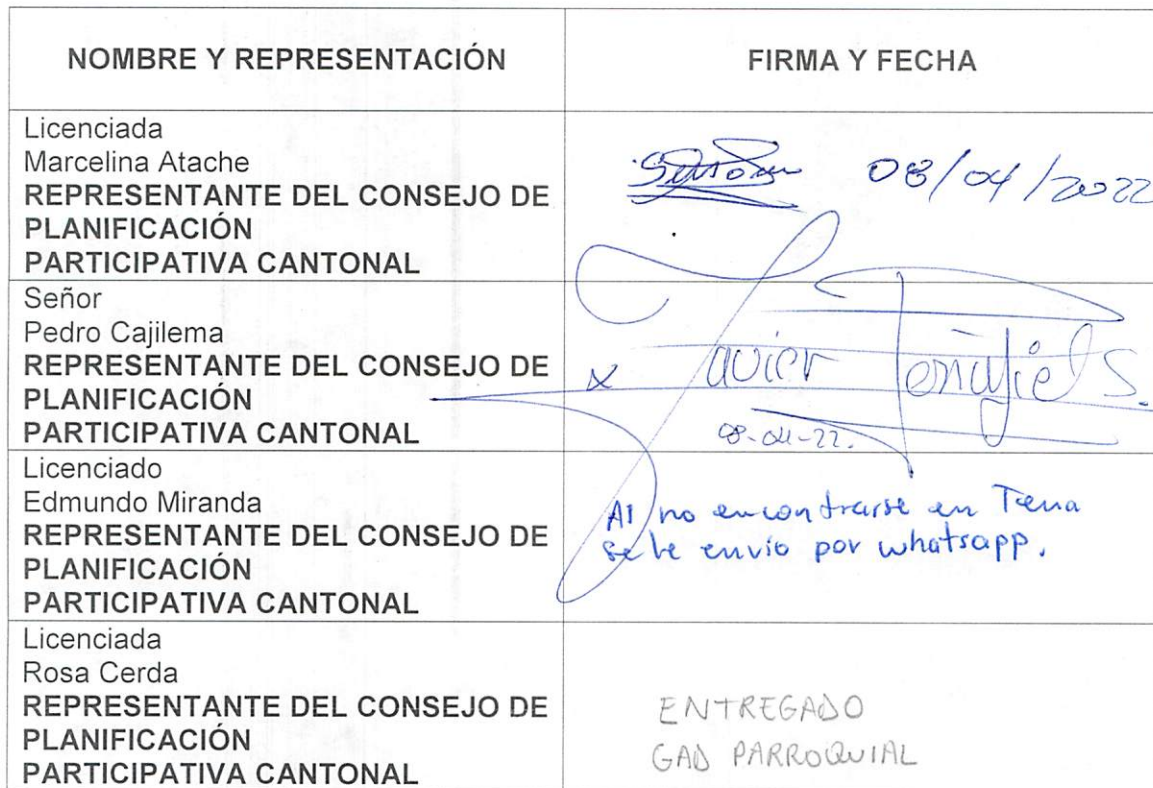 NOMBRE Y REPRESENTACIÓN
FIRMA Y FECHA
Licenciada
Marcelina Atache
REPRESENTANTE DEL CONSEJO DE
PLANIFICACIÓN
PARTICIPATIVA CANTONAL
08/04/2022
Señor
Pedro Cajilema
REPRESENTANTE DEL CONSEJO DE
PLANIFICACIÓN
PARTICIPATIVA CANTONAL
x Javier S.
08-04-22.
Licenciado
Edmundo Miranda
REPRESENTANTE DEL CONSEJO DE
PLANIFICACIÓN
PARTICIPATIVA CANTONAL
Al no encontrarse en Tena
se le envío por whatsapp.
Licenciada
Rosa Cerda
REPRESENTANTE DEL CONSEJO DE
PLANIFICACIÓN
PARTICIPATIVA CANTONAL
ENTREGADO
GAD PARROQUIAL